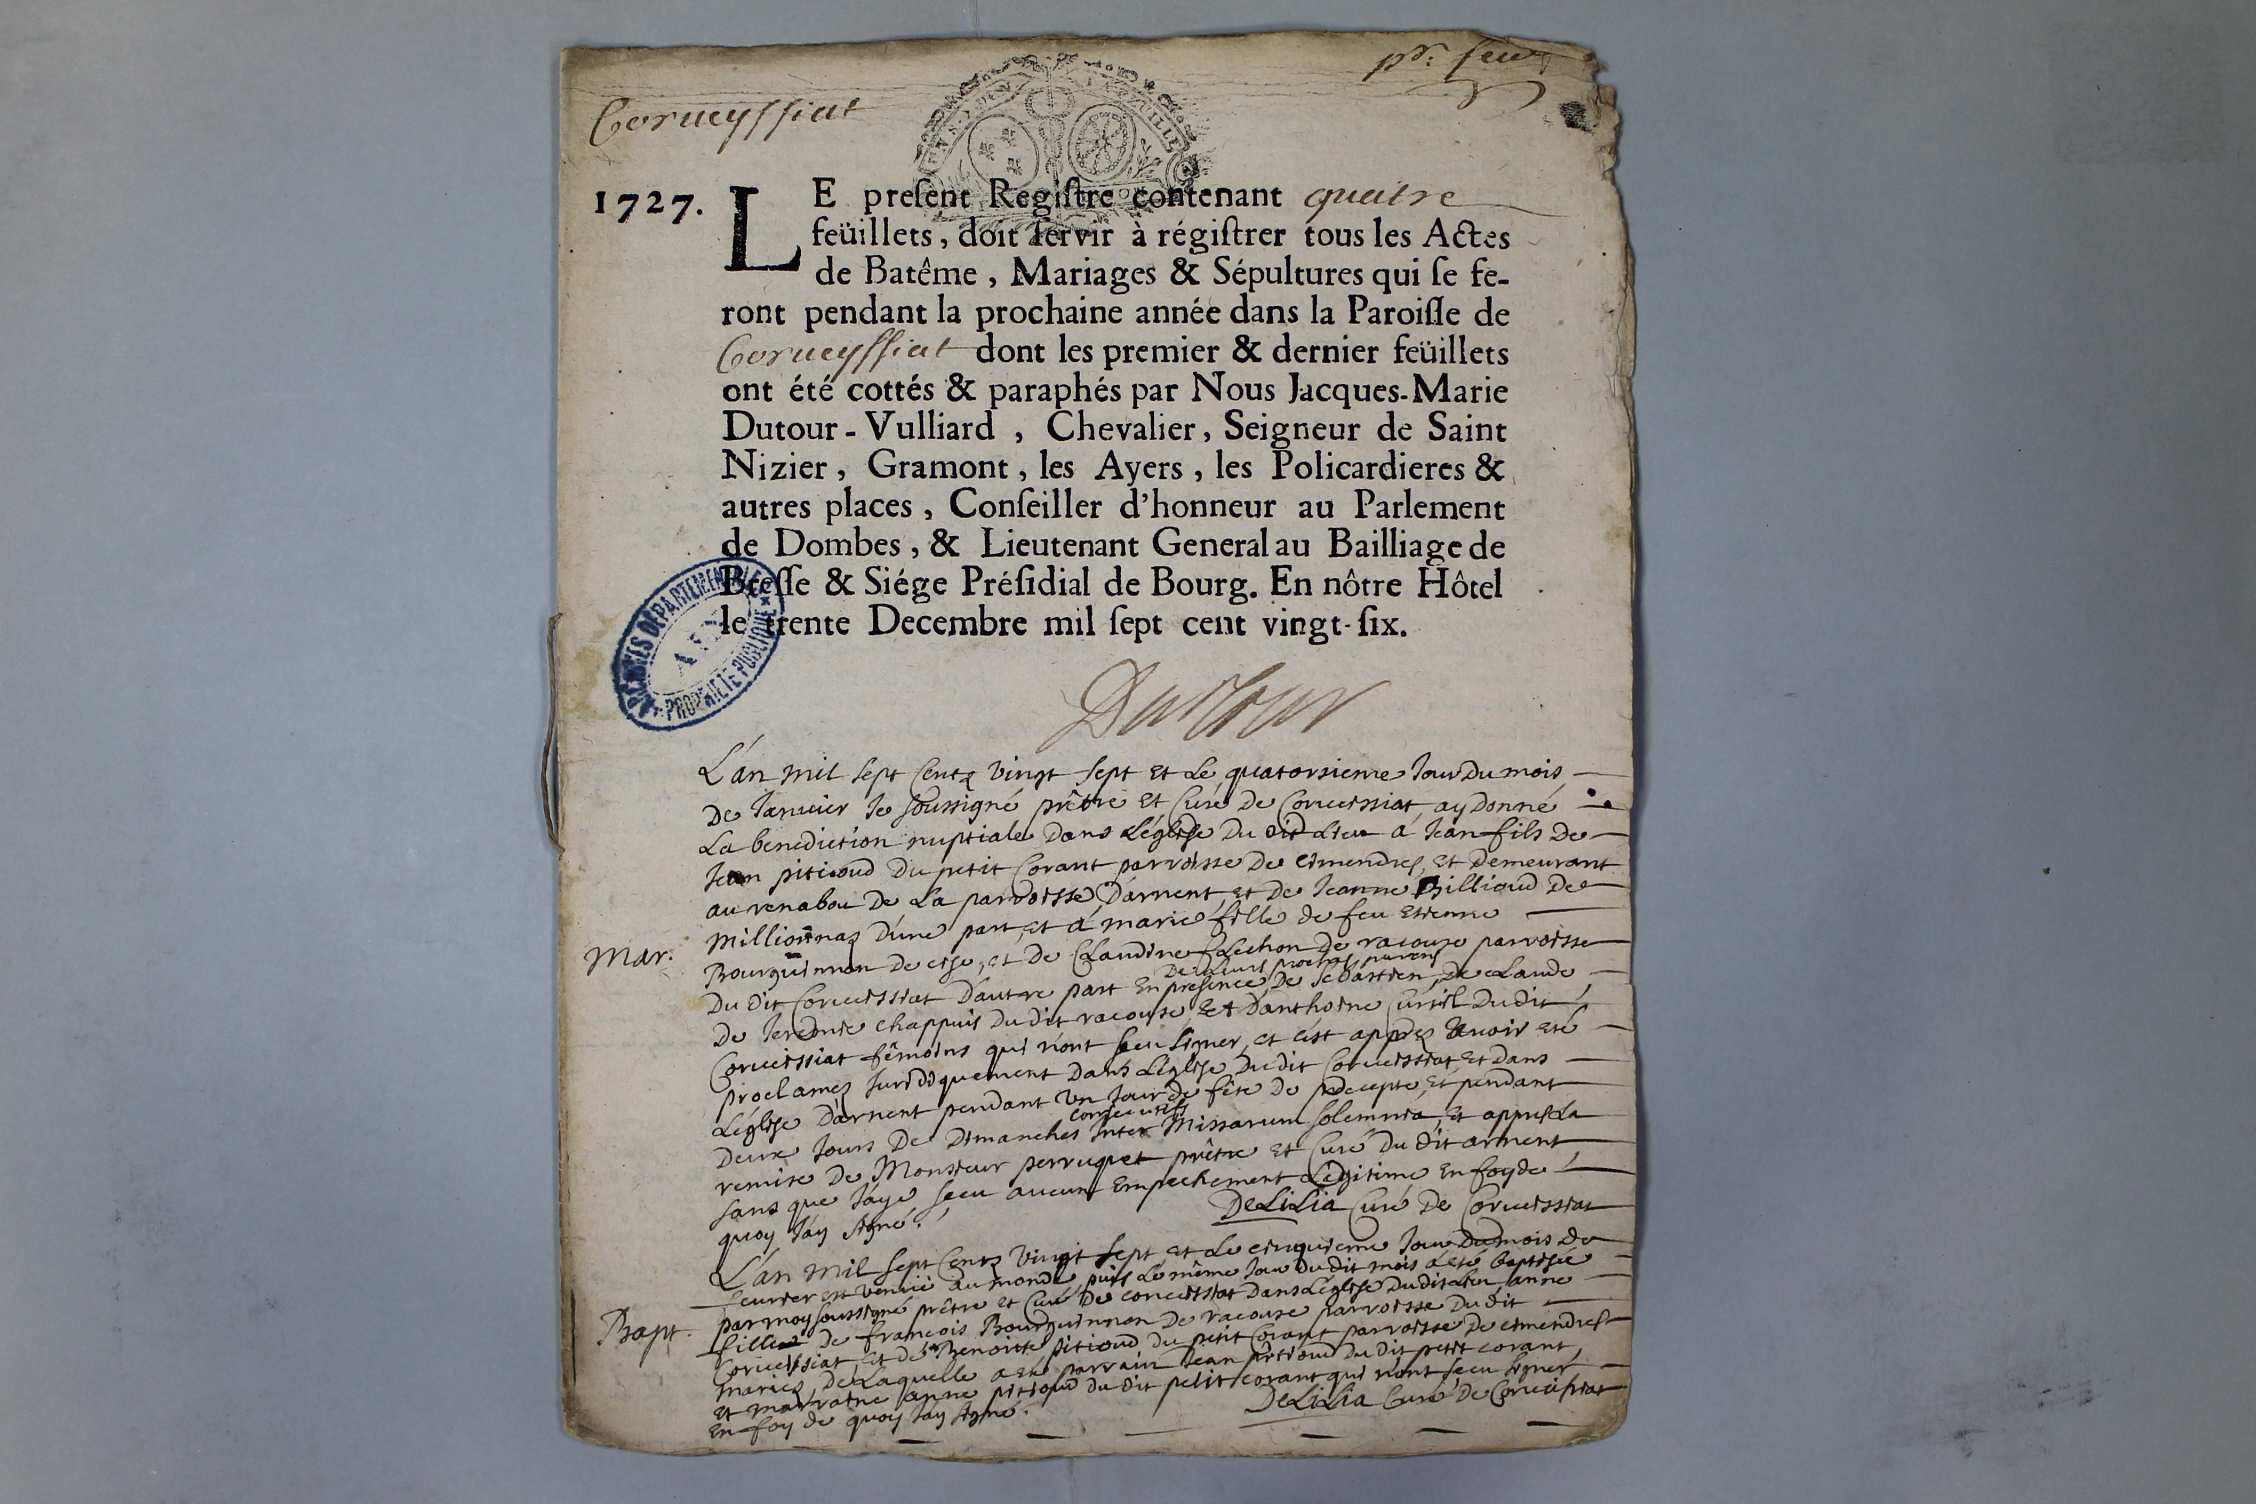 pr. feu
Corueyssiat
1727.
LE preſent Regiſtre contenant quatre
feüillets, doit ſervir à régiſtrer tous les Actes
de Batême, Mariages & Sépultures qui ſe fe-
ront pendant la prochaine année dans la Paroiſſe de
Corueyssiat dont les premier & dernier feüillets
ont été cottés & paraphés par Nous Jacques-Marie
Dutour-Vulliard, Chevalier, Seigneur de Saint
Nizier, Gramont, les Ayers, les Policardieres &
autres places, Conſeiller d'honneur au Parlement
de Dombes, & Lieutenant General au Bailliage de
Breſſe & Siége Préſidial de Bourg. En nôtre Hôtel
le trente Decembre mil ſept cent vingt-ſix.
ARCHIVES DÉPARTEMENTALES
AIN
PROPRIÉTÉ PUBLIQUE
Dutour
L'an mil sept Centz vingt sept et Le quatorsieme Jour Du mois
De Januier Je soussigné prêtre et Curé De Corueissiat ay Donné
La benediction nuptiale Dans L'église Du dit Lieu a Jean fils De
Jean pitioud Du petit Corant parroisse De simendres, et Demeurant
au renabou De La parroisse D'arnent, et De Jeanne Billioud De
millionnaz D'une part, et a marie fille de feu Etienne
Mar.
Bourguinnon De cise, et De Claudine flechon De racouse parroisse
De Leurs proches parens
Du dit Corueissiat D'autre part En presence De sebastien, De claude,
De Jeronie chappuis Du dit racouse, Et D'anthoine Curtil Du dit
Corueissiat têmoins qui n'ont sceu signer, et c'est apprez auoir eté
proclamez Juridiquement Dans L'église Du dit Corueissiat, et Dans
L'église D'arnent pendant un Jour de fête De precepte, et pendant
consecutifs
Deux Jours De Dimanches Inter Missarum solemnia, et appres La
remise De Monsieur perruquet prêtre et Curé Du dit arnent,
sans que J'aye sceu aucun Empechement Légitime En foy de
quoy J'ay signé.
DeLiLia Curé De Corueissiat
L'an mil sept Centz vingt sept et Le cinquieme Jour Du mois De
feurier est venüe au monde, puis Le même Jour Du dit mois a été baptisée
par moy soussigné prêtre et Curé De corueissiat Dans L'église Du dit Lieu, anne
Bapt.
fille De françois Bourguinnon De racouse parroisse Du dit
Corueissiat, et De Benoite pitioud du petit Corant parroisse De simendres
mariez, De Laquelle a eté parrain Jean pitioud Du dit petit corant,
et marraine anne pitioud du dit petit corant qui n'ont sceu signer
En foy de quoy J'ay signé.
DeLiLia Curé De Corueissiat